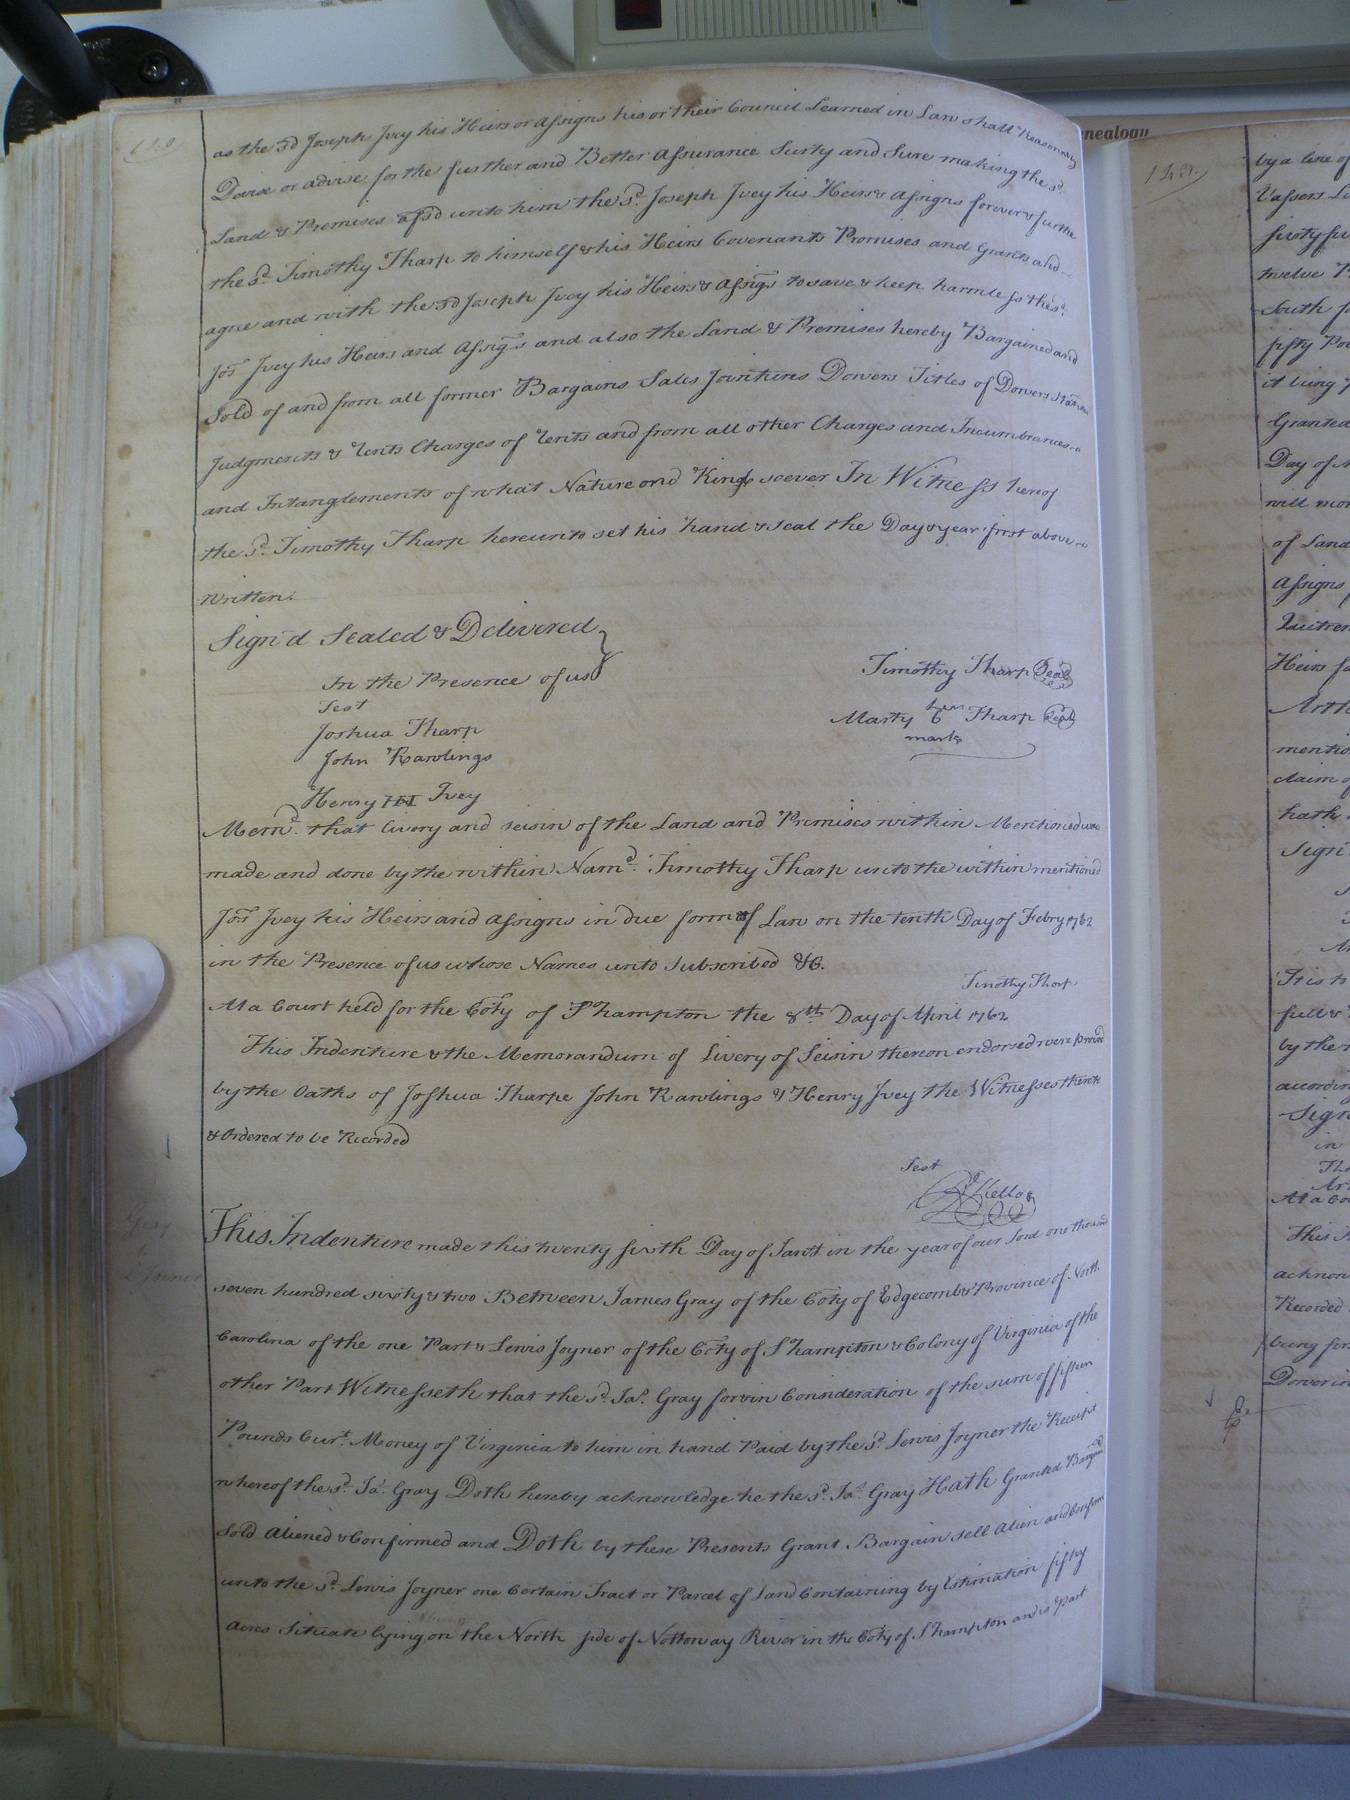 as the sd Joseph Ivey his Heirs or Assigns his or their Council Learned in Law shall Reasonably
Devise or advise for the further and Better Assurance Surty and Sure making the sd.
Land & Premises afsd unto him the sd. Joseph Ivey his Heirs & Assigns forever & further
the sd. Timothy Tharp to himself & his Heirs Covenants Promises and Grants and
agree and with the sd Joseph Ivey his Heirs & Assigs to save & keep harmless the sd.
Jos Ivey his Heirs and Assigs and also the Land & Premises hereby Bargained and
Sold of and from all former Bargains Sales Jointures Dowers Titles of Dowers
Judgments & Rents Charges of Rents and from all other Charges and Incumbrances
and Intanglements of what Nature and Kind soever In Witness hereof
the sd. Timothy Tharp hereunto set his hand & seal the Day & year first above
written.
Sign'd Sealed & Delivered
In the Presence of us
Test
Joshua Tharp
John Rawlings
Henry Ivey
Timothy Tharp Seal
her
Marty Tharp Seal
mark
Memd. that livery and seisin of the Land and Premises within Mentioned was
made and done by the within Namd. Timothy Tharp unto the within mentioned
Jos Ivey his Heirs and Assigns in due form of Law on the tenth Day of Febry 1762
in the Presence of us whose Names unto Subscribed &C.
Timothy Tharp
At a Court held for the Coty of SHampton the 8th Day of April 1762
This Indenture & the Memorandum of Livery of Seisin thereon endorsed were proved
by the Oaths of Joshua Tharpe John Rawlings & Henry Ivey the Witnesses thereto
& Ordered to be Recorded
Test
Kello
Gray
to
Joyner
This Indenture made this twenty sixth Day of Jany in the year of our Lord one thousand
seven hundred sixty & two Between James Gray of the Coty of Edgecomb & Province of North
Carolina of the one Part & Lewis Joyner of the Coty of SHampton & Colony of Virginia of the
other Part Witnesseth that the sd. Jas. Gray for & in Consideration of the sum of fifteen
Pounds Curt. Money of Virginia to him in hand Paid by the sd. Lewis Joyner the Receipt
whereof the sd. Jas. Gray Doth hereby acknowledge he the sd. Jas. Gray Hath Granted Bargaind
Sold Aliened & Confirmed and Doth by these Presents Grant Bargain sell Alien and Confirm
unto the sd. Lewis Joyner one Certain Tract or Parcel of Land Containing by Estimation fifty
Acres Situate lying on the North side of Nottoway River in the Coty of SHampton and is Part
nealogy
by a line of
twelve
South
fifty Po
it being
Granted
Day of
will mor
of Land
Assigns
Quitren
Heirs
Arth
mentio
claim of
hath
Sign
full &
by the
according
Sign
in
At a Co
This
acknow
Recorded
being
Dower in